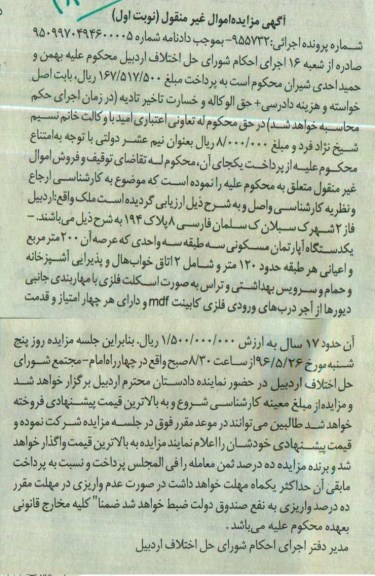 آگهی مزایده اموال غیر منقول (نوبت اول)
شماره پرونده اجرائی: ۹۵۵۷۳۲- بموجب دادنامه شماره ۹۵۰۹۹۷۰۴۹۴۶۰۰۰۰۵
صادره از شعبه ۱۶ اجرای احکام شورای حل اختلاف اردبیل محکوم علیه بهمن و
حمید احدی شیران محکوم است به پرداخت مبلغ ۱۶۷/۵۱۷/۵۰۰ ریال، بابت اصل
خواسته و هزینه دادرسی+ حق الوکاله و خسارت تاخیر تادیه (در زمان اجرای حکم
محاسبه خواهد شد) در حق محکوم له تعاونی اعتباری امید با وکالت خانم نسیم
شیخ نژاد فرد و مبلغ ۸/۰۰۰/۰۰۰ ریال بعنوان نیم عشر دولتی با توجه به امتناع
محکوم علیه از پرداخت یکجای آن، محکوم له تقاضای توقیف و فروش اموال
غیر منقول متعلق به محکوم علیه را نموده است که موضوع به کارشناسی ارجاع
و نظریه کارشناسی واصل و به شرح ذیل ارزیابی گردیده است ملک واقع: اردبیل
فاز ۲ شهرک سبلان ک سلمان فارسی ۸ پلاک ۱۹۴ به شرح ذیل می‌باشند. -
یکدستگاه آپارتمان مسکونی سه طبقه سه واحدی که عرصه آن ۲۰۰ متر مربع
و اعیانی هر طبقه حدود ۱۲۰ متر و شامل ۲ اتاق خواب هال و پذیرایی آشپزخانه
و حمام و سرویس بهداشتی و تراس به صورت اسکلت فلزی با مهاربندی جانبی
دیورها از آجر درب‌های ورودی فلزی کابینت mdf و دارای هر چهار امتیاز و قدمت
آن حدود ۱۷ سال به ارزش ۱/۵۰۰/۰۰۰/۰۰۰ ریال. بنابراین جلسه مزایده روز پنج
شنبه مورخ ۹۶/۵/۲۶ از ساعت ۸/۳۰ صبح واقع در چهارراه امام- مجتمع شورای
حل اختلاف اردبیل در حضور نماینده دادستان محترم اردبیل برگزار خواهد شد
و مزایده از مبلغ معینه کارشناسی شروع و به بالاترین قیمت پیشنهادی فروخته
خواهد شد طالبین می‌توانند در موعد مقرر فوق در جلسه مزایده شرکت نموده و
قیمت پیشنهادی خودشان را اعلام نمایند مزایده به بالاترین قیمت واگذار خواهد
شد و برنده مزایده ده درصد ثمن معامله را فی المجلس پرداخت و نسبت به پرداخت
مابقی آن حداکثر یکماه مهلت خواهد داشت در صورت عدم واریزی در مهلت مقرر
ده درصد واریزی به نفع صندوق دولت ضبط خواهد شد ضمنا" کلیه مخارج قانونی
بعهده محکوم علیه می‌باشد.
مدیر دفتر اجرای احکام شورای حل اختلاف اردبیل